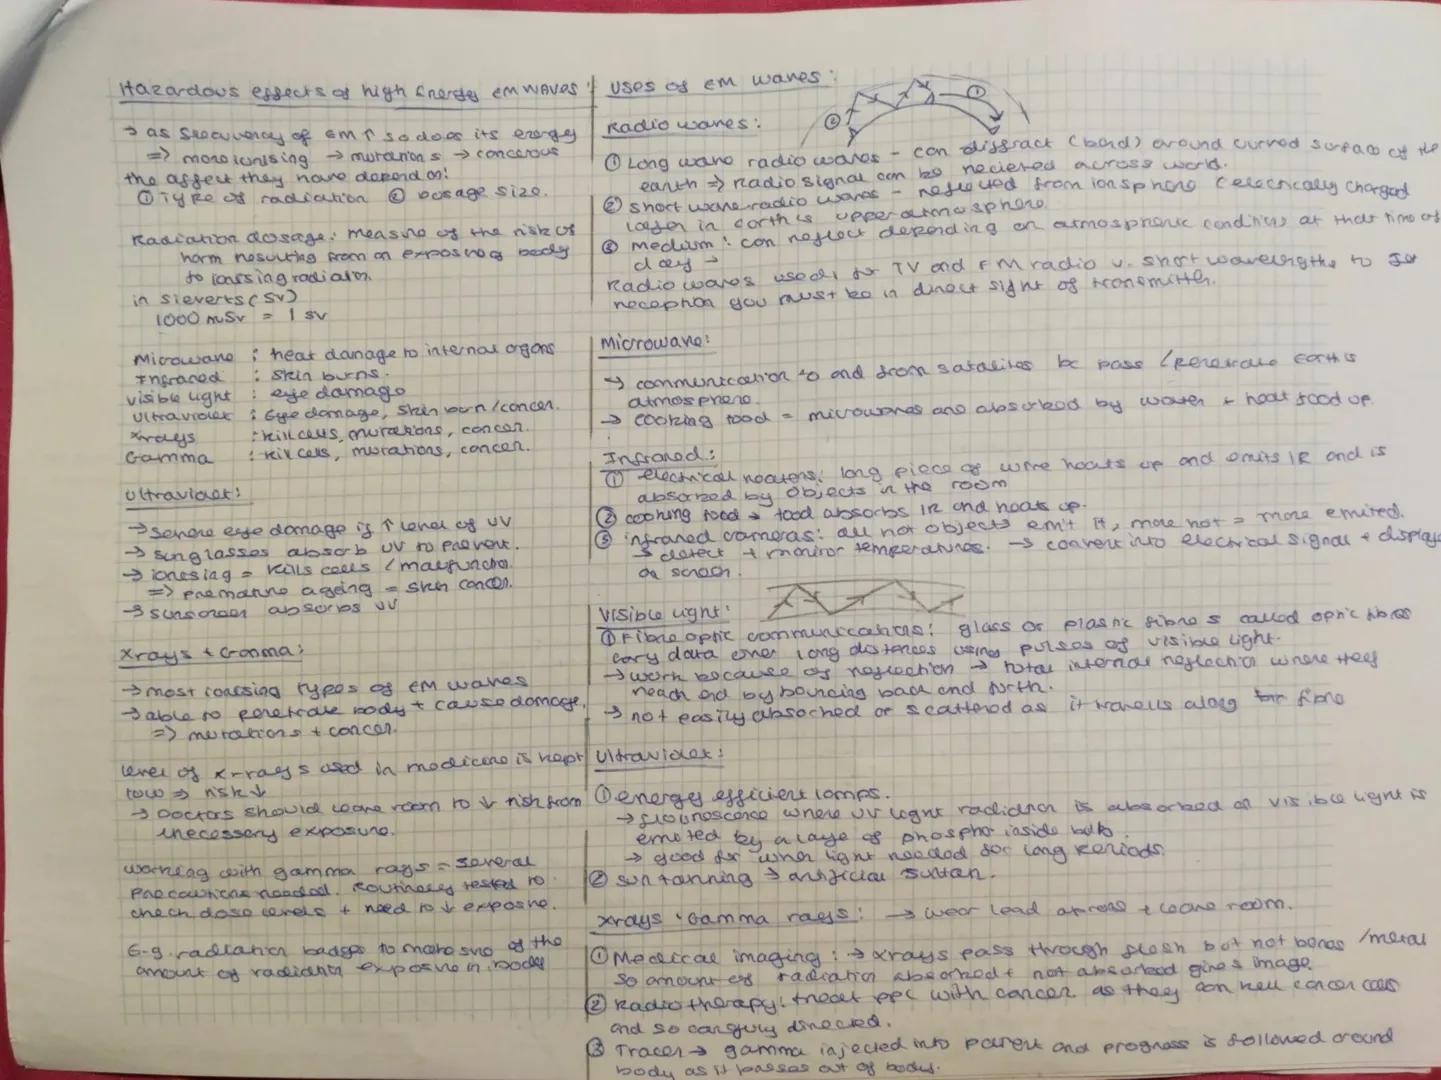 Hazardous effects of high energy em waves:
→ as frequency of em ↑ so does its energy
⇒ more ionising → mutations → cancerous
the affect they have depend on:
① Type of radiation ② dosage size.
Radiation dosage: measure of the risk of
harm resulting from an exposure of body
to ionising radiation.
in sieverts (Sv)
1000 mSv = 1 Sv
Microwave : heat damage to internal organs
Infrared : skin burns.
visible light : eye damage
Ultraviolet : Eye damage, skin burn/cancer.
Xrays : kill cells, mutations, cancer.
Gamma : kill cells, mutations, cancer.
Ultraviolet:
→ severe eye damage if ↑ level of UV
→ sunglasses absorb UV to prevent.
→ ionising = kills cells / malfunction.
⇒ premature ageing = skin cancer.
→ sunscreen absorbs UV
Xrays + Gamma:
→ most ionising types of em waves
→ able to penetrate body + cause damage.
⇒ mutations + cancer.
level of x-rays used in medicine is kept
low ⇒ risk ↓
→ Doctors should leave room to ↓ risk from
unecessery exposure.
working with gamma rays = several
precautions needed. Routinely tested to
check dose levels + need to ↓ exposure.
E.g. radiation badges to make sure of the
amount of radiation exposure in body
Uses of em waves:
① ②
Radio waves:
① Long wave radio waves - can diffract (bend) around curved surface of the
earth ⇒ radio signal can be recieved across world.
② short wave radio waves - reflected from ionsphere (electrically charged
layer in earth's upper atmosphere.
③ medium: can reflect depending on atmospheric conditions at that time of
day →
Radio waves used for TV and FM radio v. short wavelengths to get
reception you must be in direct sight of transmitter.
Microwave:
→ communication to and from satalites bc pass / penetrate earth's
atmosphere.
→ cooking food = microwaves are absorbed by water + heat food up.
Infrared:
① electrical heaters: long piece of wire heats up and emits IR and is
absorbed by objects in the room
② cooking food → food absorbs IR and heats up.
③ infrared cameras: all hot objects emit it, more hot = more emitted.
→ detect + monitor temperatures. → convert into electrical signal + display
on screen.
Visible light:
① Fibre optic communications: glass or plastic fibres called optic fibres
cary data over long distances using pulses of visible light.
→ work because of reflection → total internal reflection where they
reach end by bouncing back and forth.
→ not easily absorbed or scattered as it travells along fibre
Ultraviolet:
① energy efficient lamps.
→ flournescence where UV light radiation is absorbed an visible light is
emitted by a laye of phospho inside bulb.
→ good for when light needed for long periods.
② sun tanning → artificial suntan.
Xrays + Gamma rays: → wear lead aprons + leave room.
① Medical imaging: → xrays pass through flesh but not bones / metal
so amount of radiation absorbed + not absorbed gives image.
② Radiotherapy: treat ppl with cancer as they can kill cancer cells
and so carefully directed.
③ Tracer → gamma injected into patient and progress is followed around
body as it passes out of body.